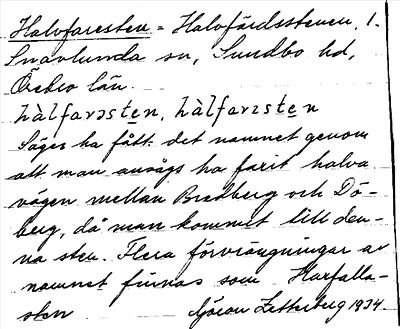 Halvfaresten = Halvfärdsstenen, 1.
Snavlunda sn, Sundbo hd,
Örebro län.
hàlfarəsten, hàlfarɪsten
Säges ha fått det namnet genom
att man ansågs ha farit halva
vägen mellan Bredberg och Dö-
berg, då man kommit till den-
na sten. Flera förvrängningar av
namnet finnas som Harfalla-
sten Göran Zetterberg 1934